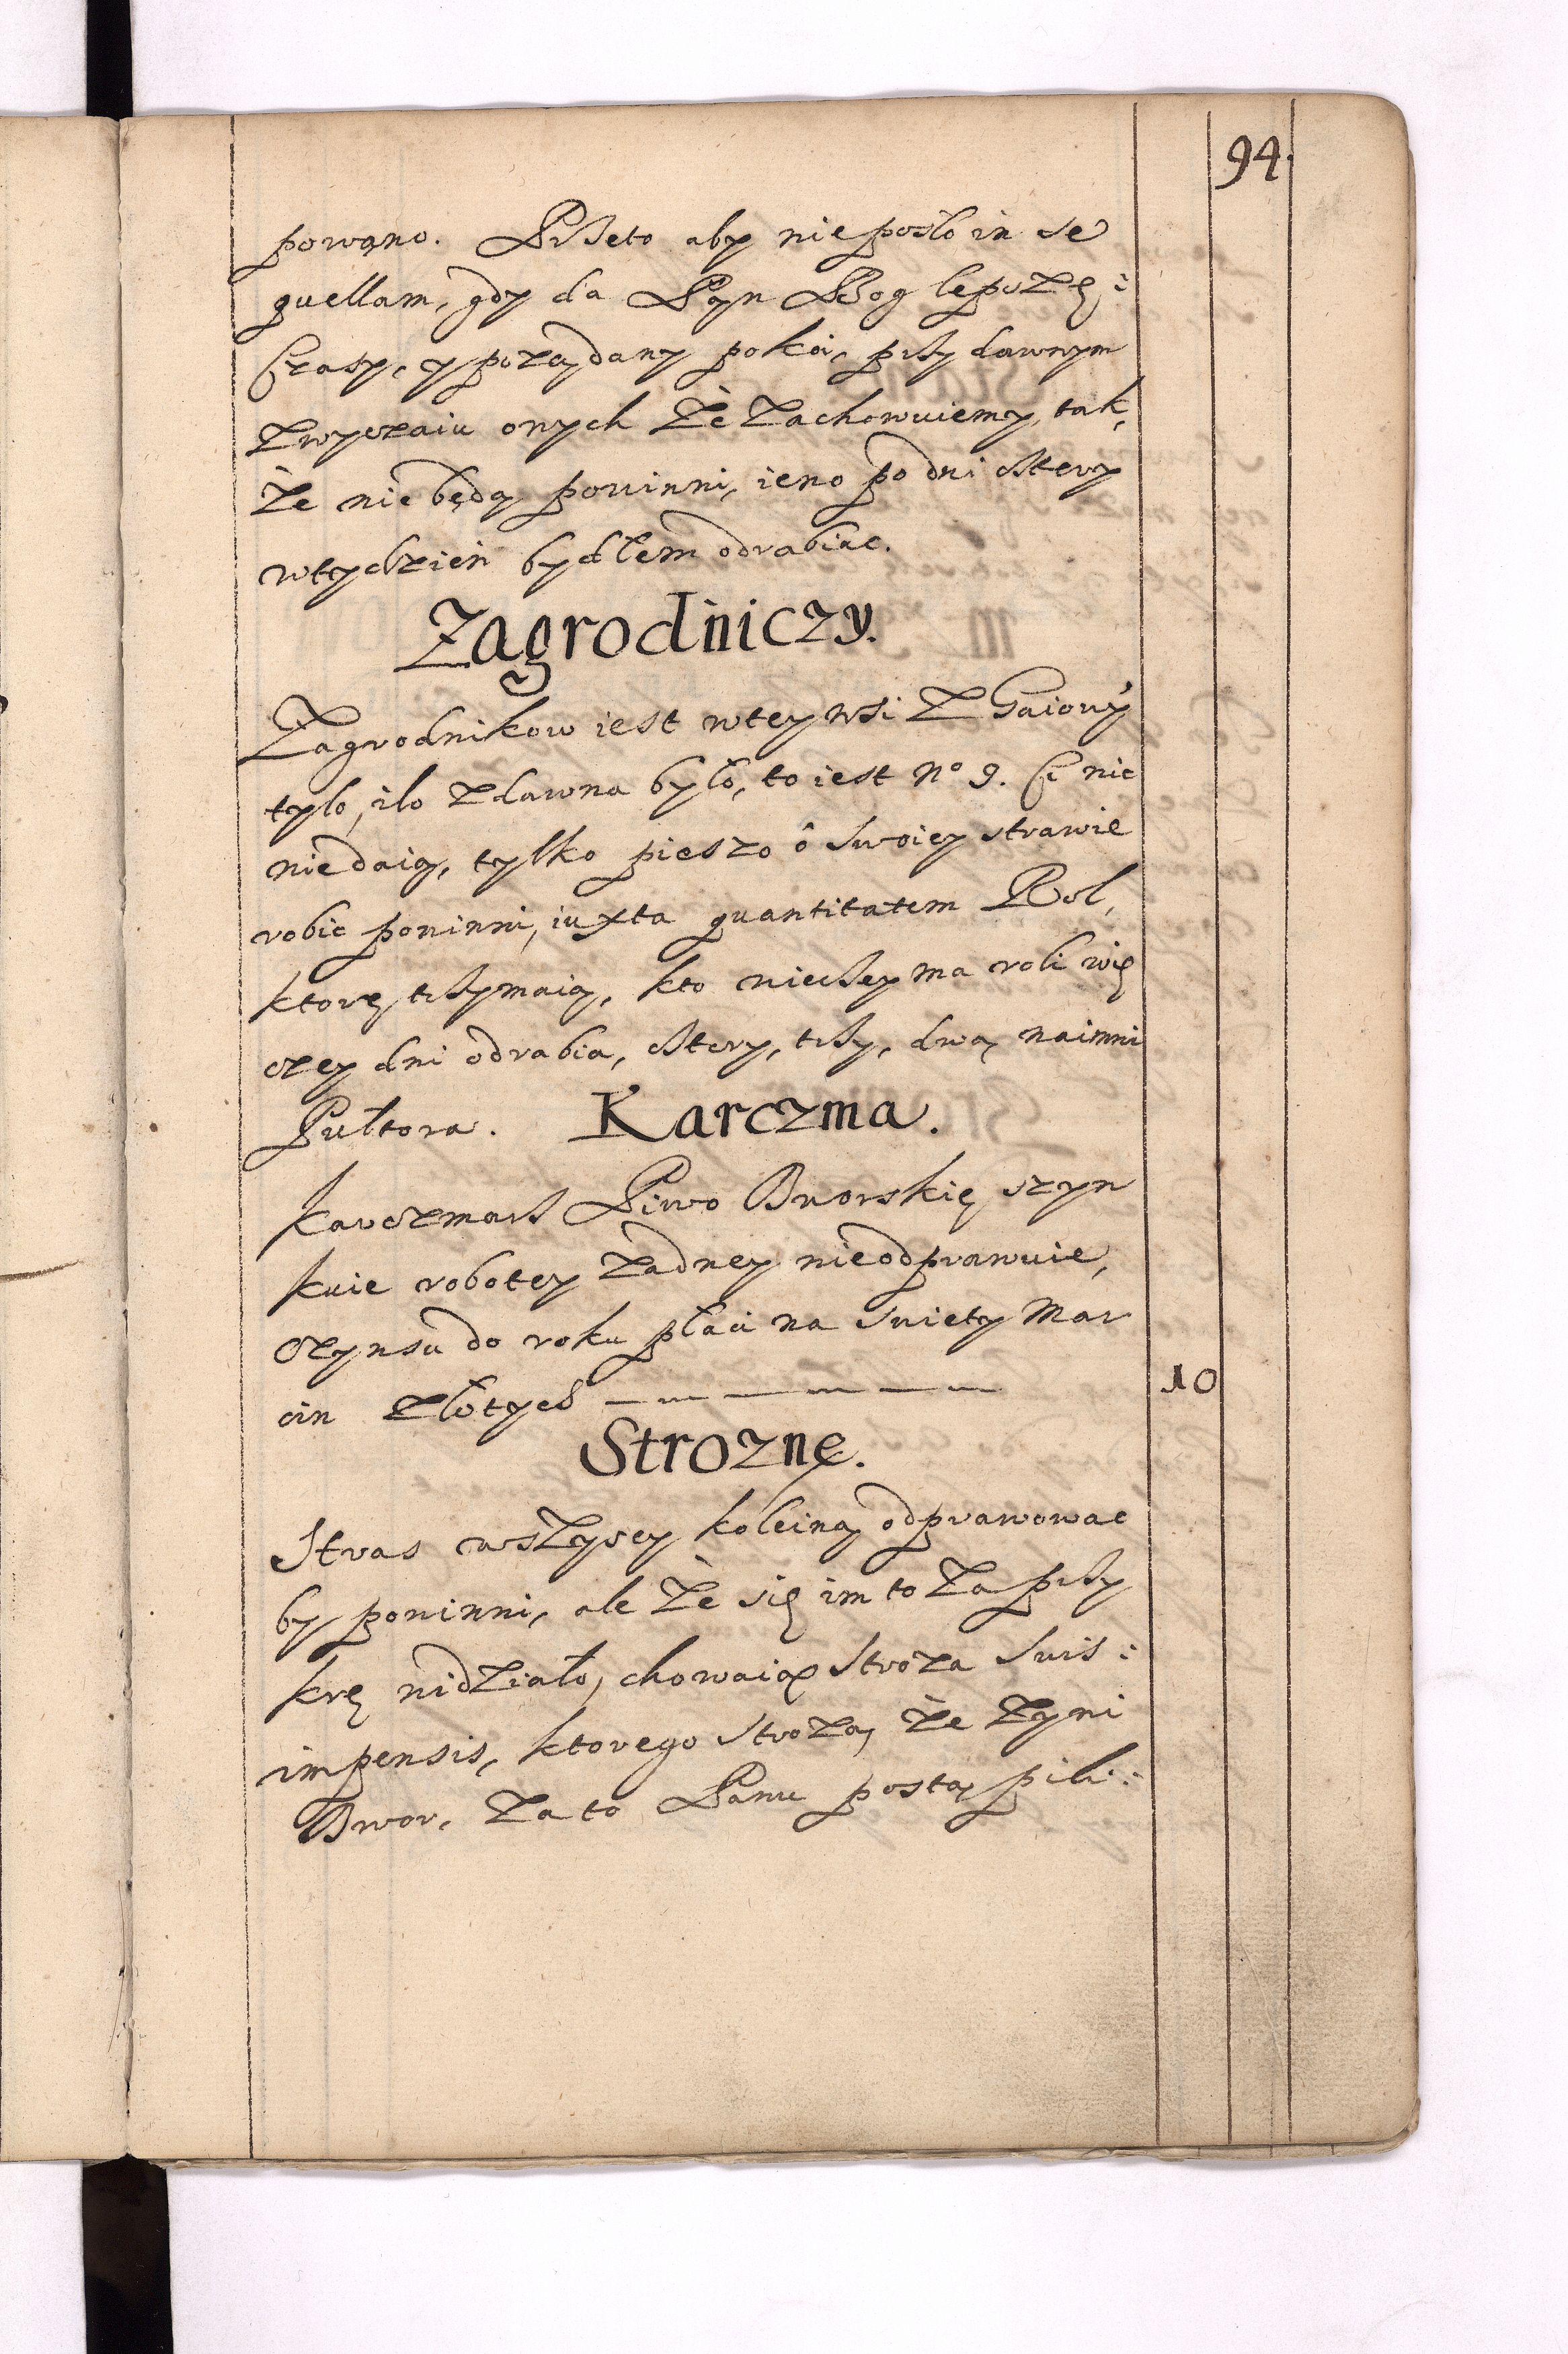 94.
powano. Przeto aby nie poszło in se
quellam, gdy da Pan Bog lepszę:
Czasy, y pożądany pokoi, przy dawnym
zwyczaiu onych że zachowuiemy, tak,
że nie będą powinni, ieno po dni cztery
w tydzień bydłem odrabiac.
Zagrodniczy.
Zagrodnikow iest w tey wsi z Gaiowy
tylo, ilo zdawna było, to iest No 9. Ci nic
nie daią, tylko pieszo o swoiey strawie
robic powinni, iuxta quantitatem Rol,
ktorę trzymaią, kto wieczey ma roli wię
czey dni odrabia, cztery, trzy, dwa, naimni
Pułtora. Karczma.
Karczmarz Piwo Dworskię szyn
kuie robotey żadney nie odprawuie,
Czynszu do roku płaci na Swiety Mar
cin złotych 10
Strozne.
Stras wszyscy koleiną odprawowac
by powinni, ale że się im to za przy
krę widziało, chowaią stroża suis:
impensis, ktorego stroża, że żywi
Dwor, za to Panu postąpili: